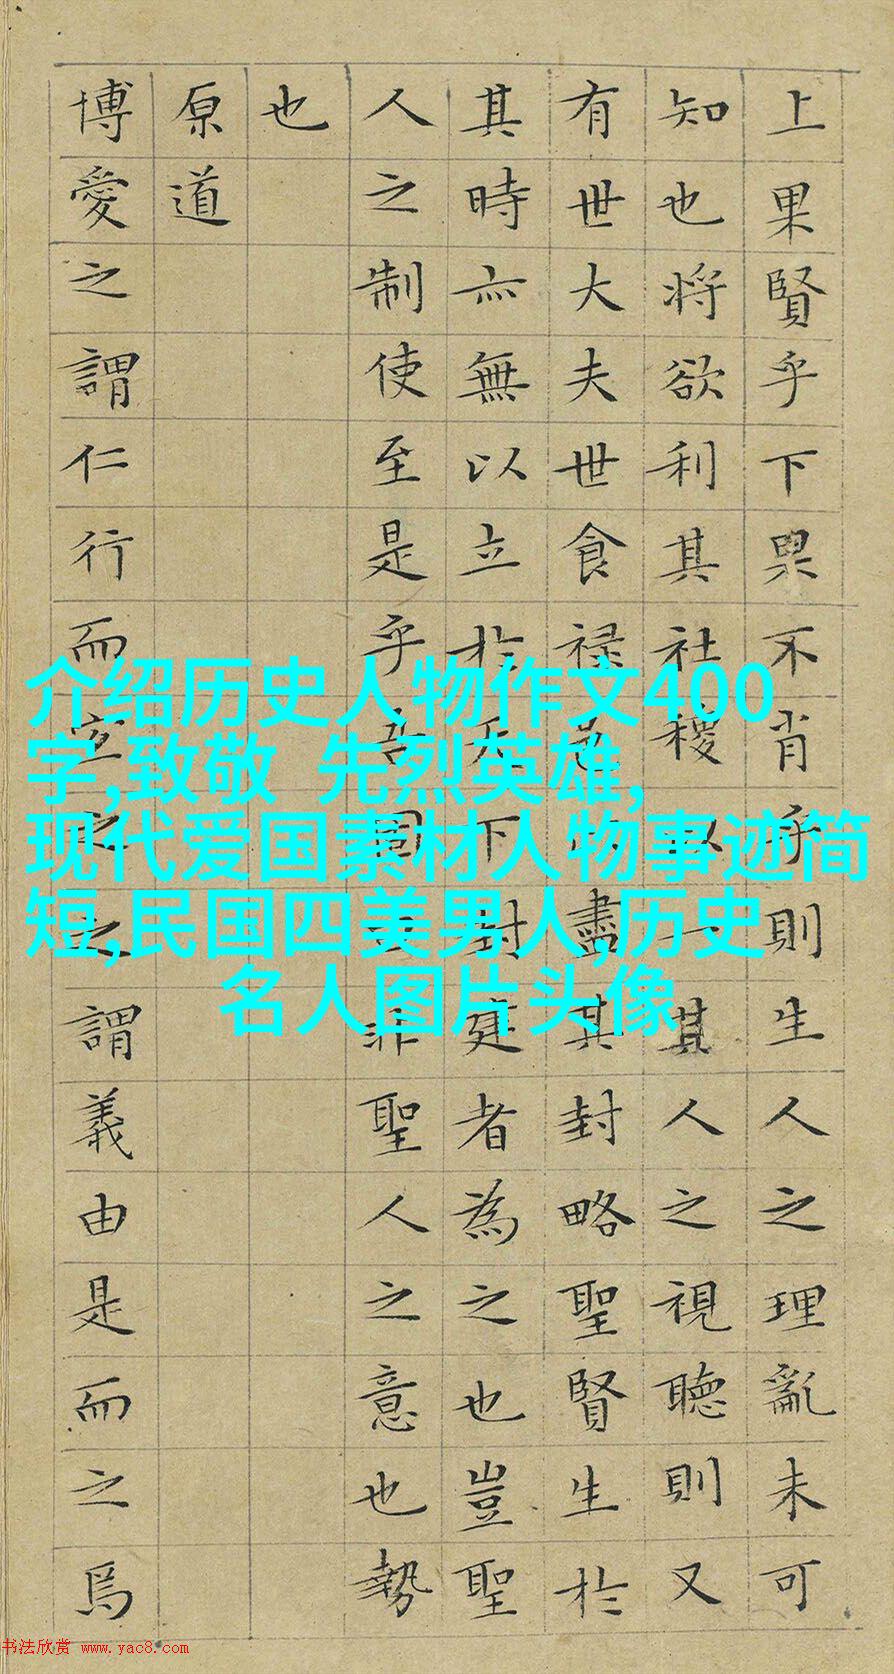 上果賢乎下果不肖乎則生人之理亂未可
知也將欲利其社稷以一其人之視聽則又
有世大夫世食祿邑以盡其封略聖賢生於
其時亦無以立於天下封建者為之也豈聖
人之制使至是乎吾固非聖人之意也勢
也
原道
博愛之謂仁行而宜之之謂義由是而之焉
介绍历史人物作文400
字,致敬 先烈英雄,
现代爱国素材人物事迹简
短,民国四美男人,历史
名人图片头像
书法欣赏 www.yac8.com